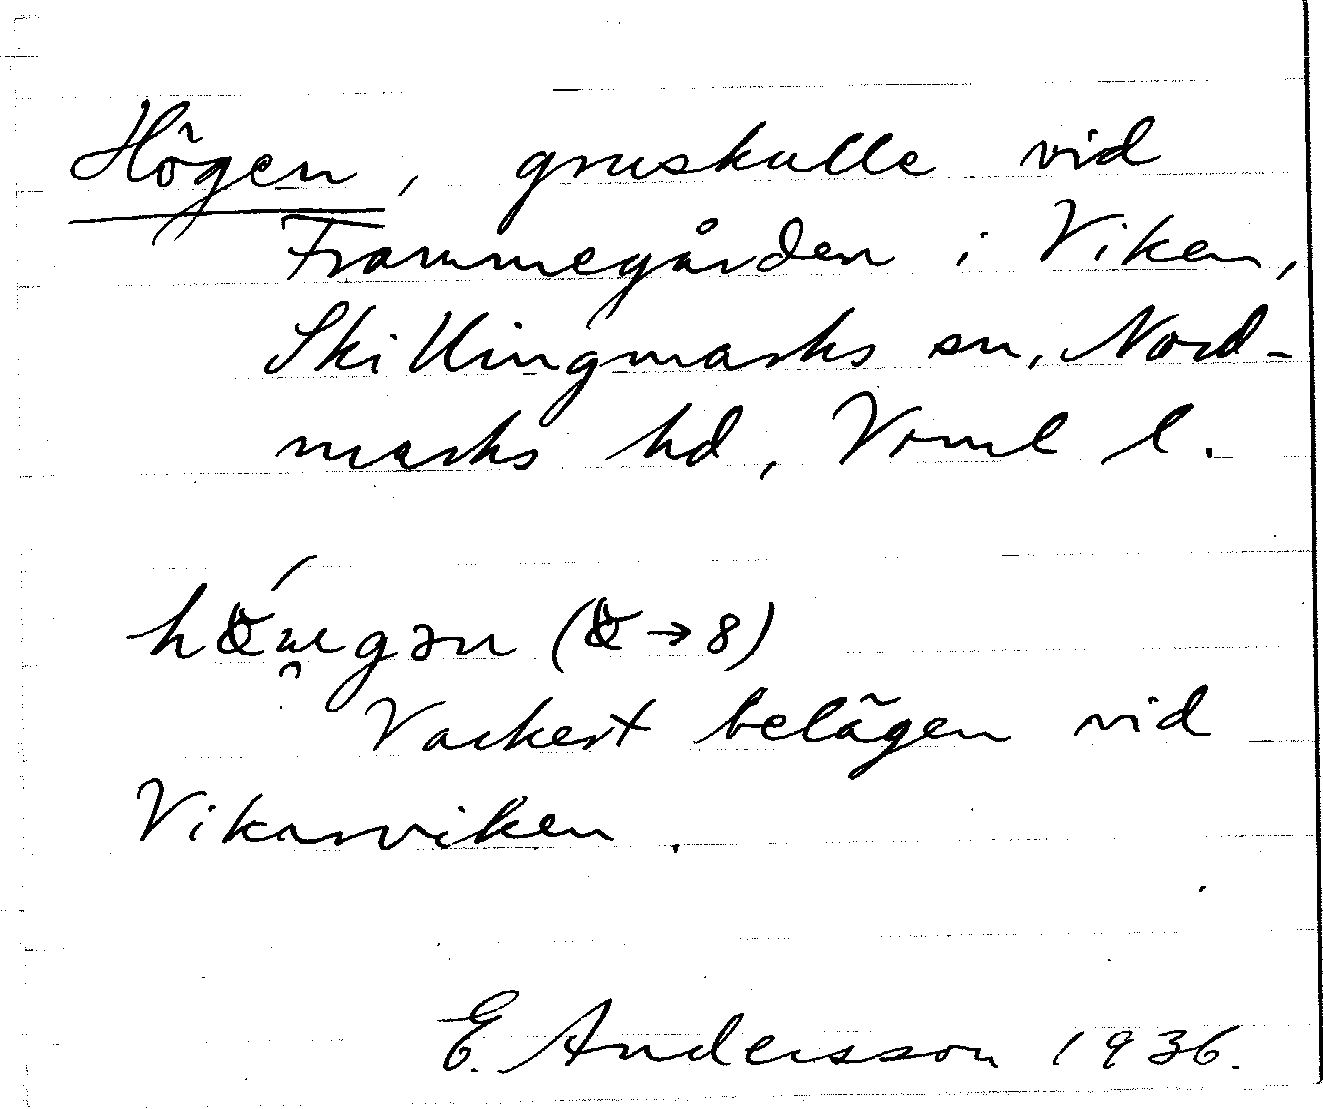 Högen, gruskulle vid
Frammegården i Viken,
Skillingmarks sn, Nord-
marks hd, Vrml l.
Vackert belägen vid
Vikarviken.
E. Andersson 1936.